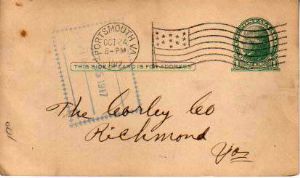 PORTSMOUTH VA
OCT 24
8-PM
1917
THIS SIDE OF CARD IS FOR ADDRESS
The Corley Co
Richmond
Va